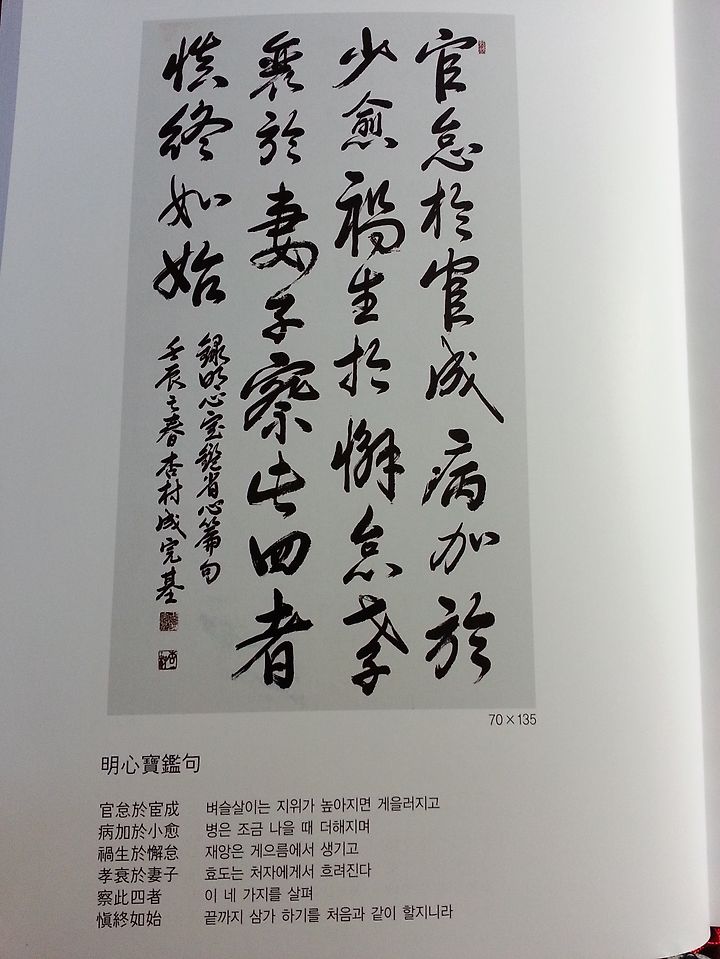 官怠於宦成病加於
少愈禍生於懈怠孝
衰於妻子察此四者
慎終如始
錄明心宝鑑省心篇句
壬辰之春杏村成完基
70×135
明心寶鑑句
官怠於宦成 벼슬살이는 지위가 높아지면 게을러지고
病加於小愈 병은 조금 나을 때 더해지며
禍生於懈怠 재앙은 게으름에서 생기고
孝衰於妻子 효도는 처자에게서 흐려진다
察此四者 이 네 가지를 살펴
愼終如始 끝까지 삼가 하기를 처음과 같이 할지니라